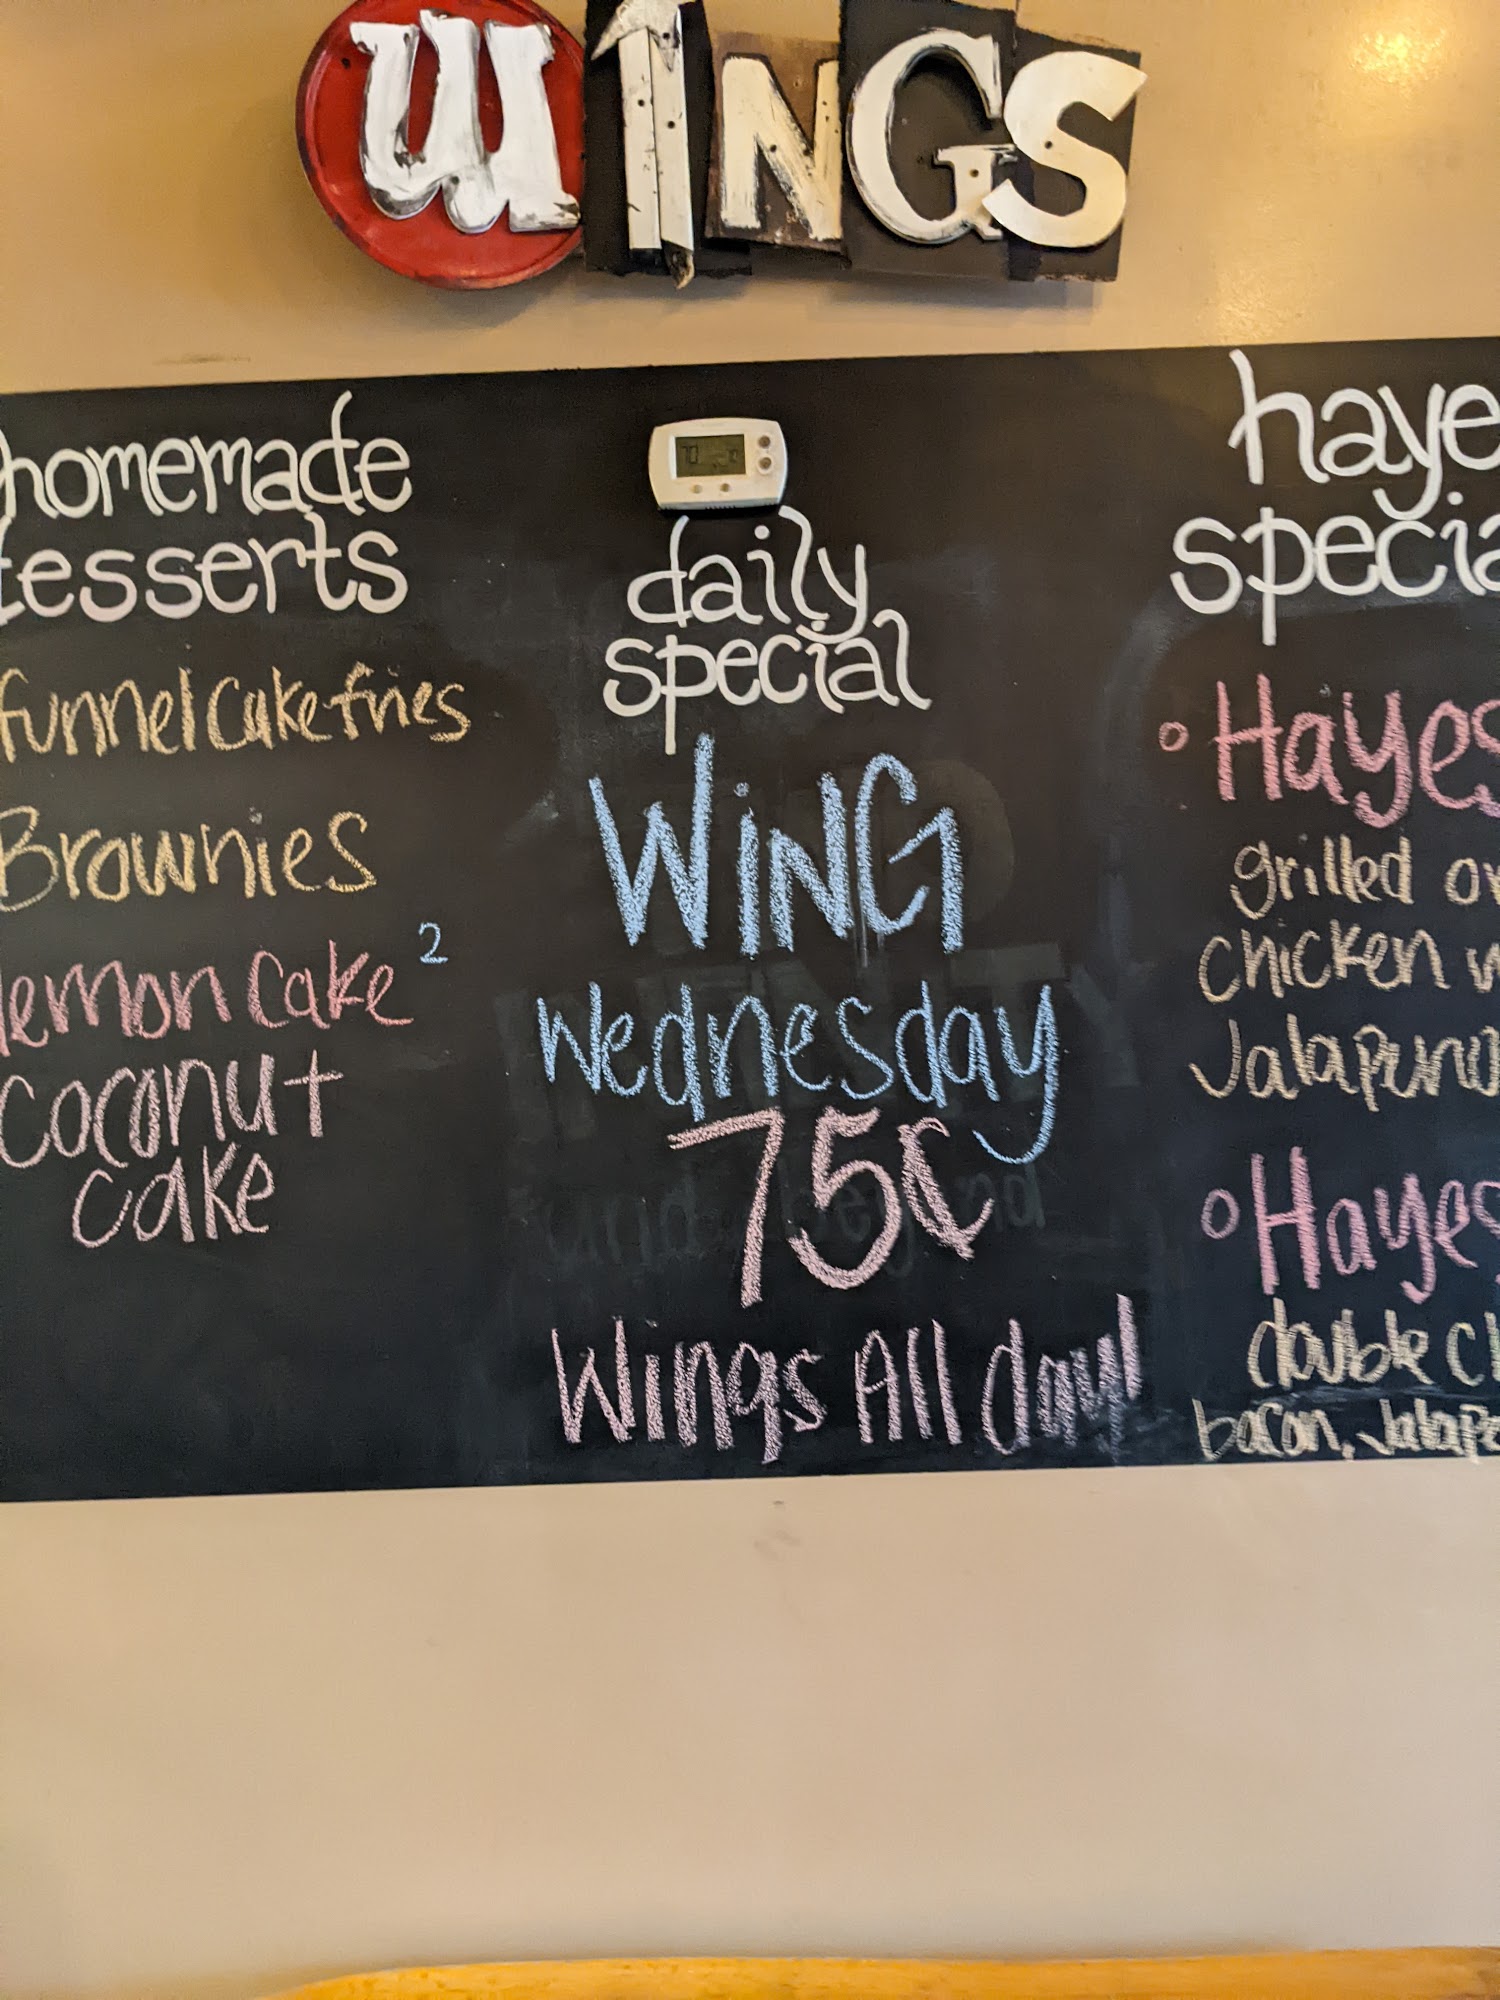 WINGS
homemade
desserts
funnel cake fries
Brownies
lemon cake 2
coconut
cake
daily
special
WiNG
Wednesday
75¢
Wings All day!
haye
specia
Hayes
grilled or
chicken w
Jalapeno
Hayes
double ch
bacon, Jalape
70